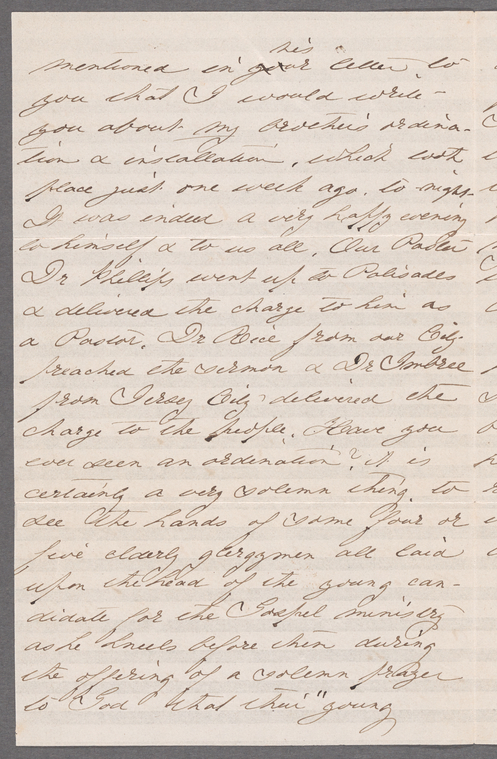 his
mentioned in your letter to
you that I would write
you about my brother's ordina-
tion & installation, which took
place just one week ago to-night.
It was indeed a very happy evening
to himself & to us all. Our Pastor
Dr Phillips went up to Palisades
& delivered the charge to him as
a Pastor. Dr Rice from our City
preached the sermon & Dr Imbree
from Jersey City delivered the
charge to the people. Have you
ever seen an ordination? It is
certainly a very solemn thing to
see the hands of some four or
five elderly clergymen all laid
upon the head of the young can-
didate for the Gospel ministry
as he kneels before them during
the offering of a solemn prayer
to God that their "young